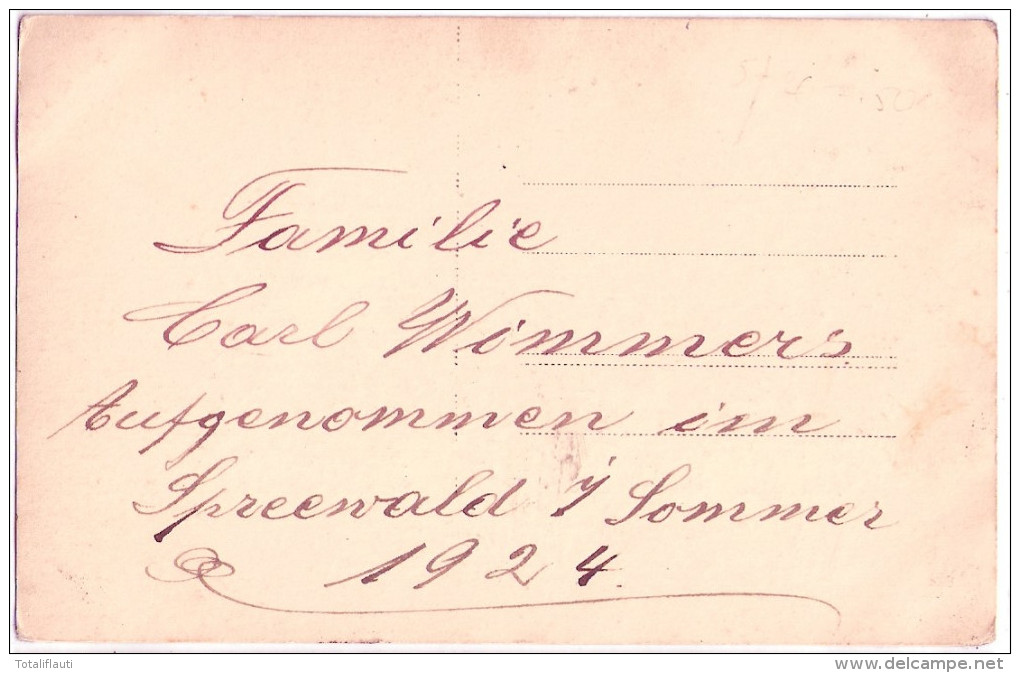 Familie
Carl Wimmers
Aufgenommen im
Spreewald i/ Sommer
1924.
Totaliflauti
www.delcampe.net